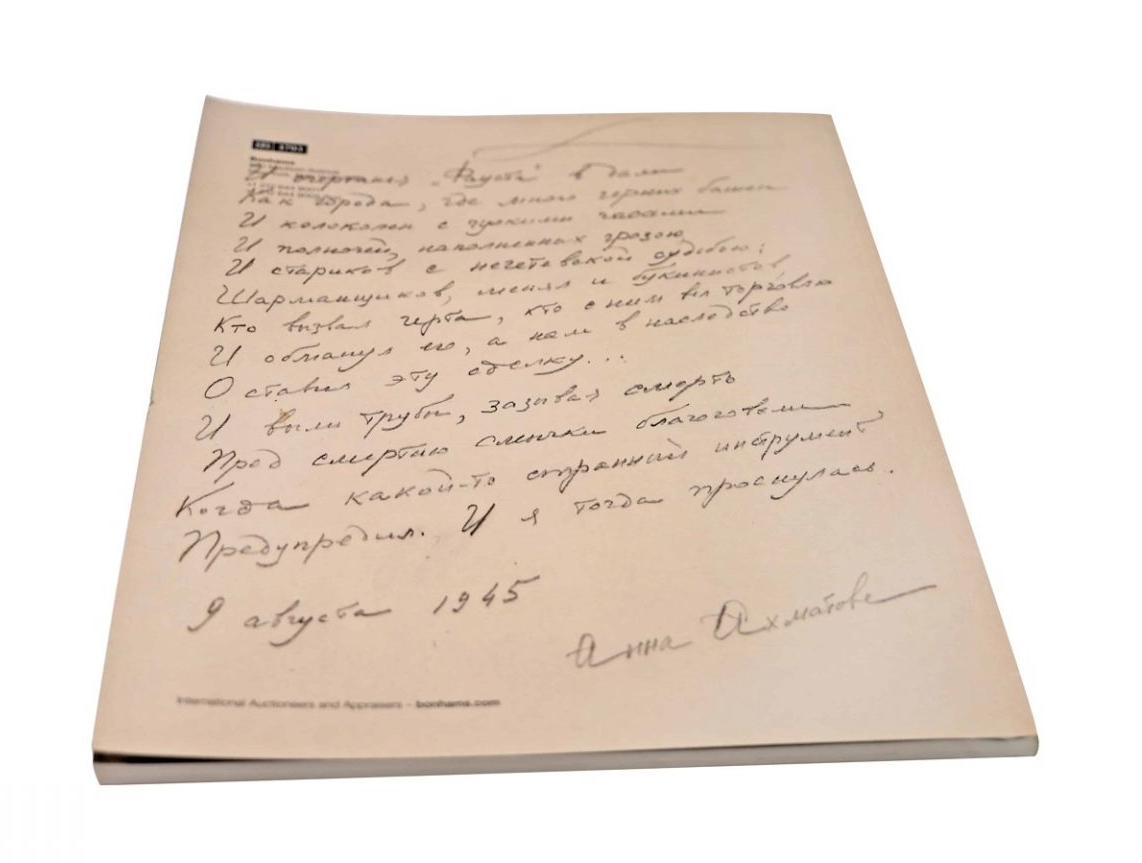 Bonhams
И очертанья „Фауста" в дали
Как города, где много черных башен
И колоколен с гулкими часами
И полночей, наполненных грозою
И стариков с негетевской судьбою:
Шарманщиков, менял и букинистов
Кто вызвал черта, кто с ним вел торговлю
И обманул его, а нам в наследство
Оставил эту сделку...
И выли трубы, зазывая смерть
Пред смертию смычки благоговели,
Когда какой-то странный инструмент
Предупредил. И я тогда проснулась.
9 августа 1945
Анна Ахматова
International Auctioneers and Appraisers – bonhams.com